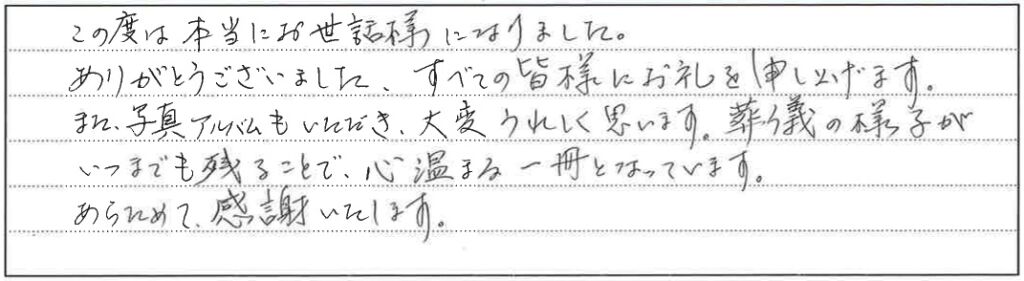 この度は本当にお世話様になりました。
ありがとうございました、すべての皆様にお礼を申し上げます。
また、写真アルバムもいただき、大変うれしく思います。葬儀の様子が
いつまでも残ることで、心温まる一冊となっています。
あらためて、感謝いたします。